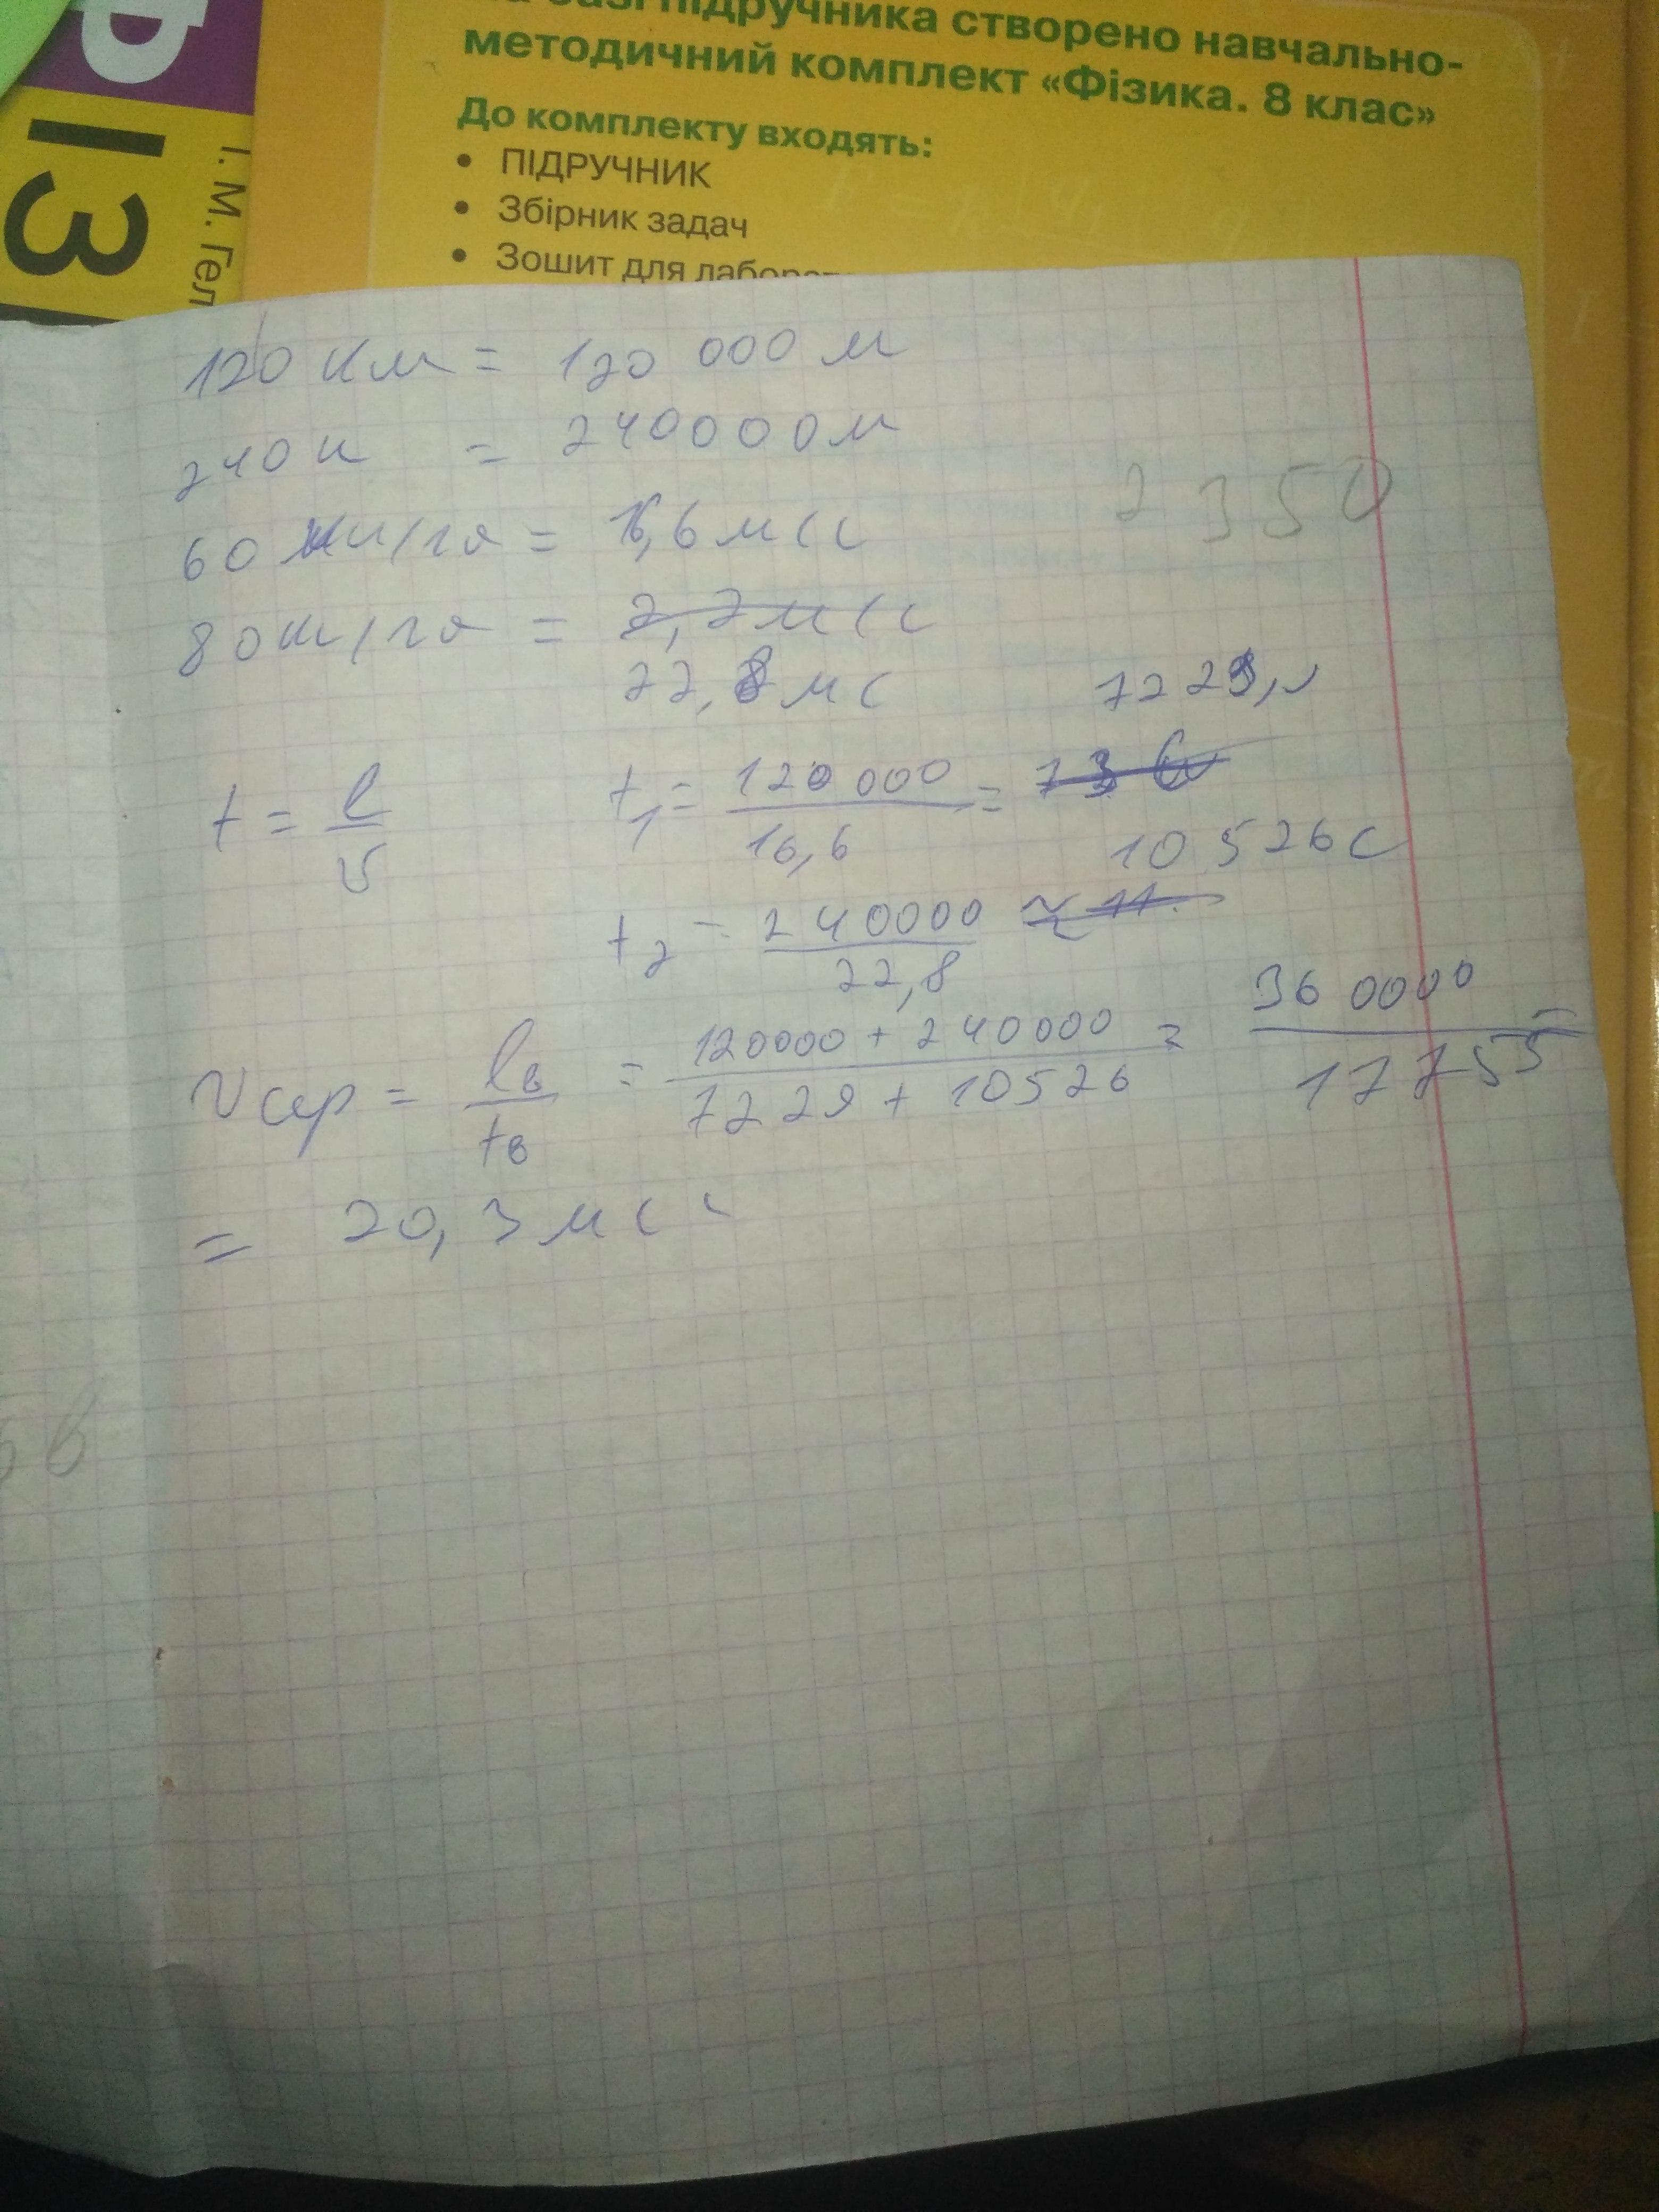 підручника створено навчально-
методичний комплект «Фізика. 8 клас»
До комплекту входять:
• ПІДРУЧНИК
• Збірник задач
• Зошит для
ФІЗ
І. М. Гел
120 км = 120 000 м
240 к = 240000 м
2350
60 км/го = 16,6 м/с
80 км/го = 2,2 м/с
22,8 м/с
7229
t = l/v
t₁ = 120 000/16,6 =
10 526 с
t₂ = 240000/22,8 ≈ 11
vсер = lв/tв = 120000 + 240000/7229 + 10526 = 360000/17755 =
= 20,3 м/с